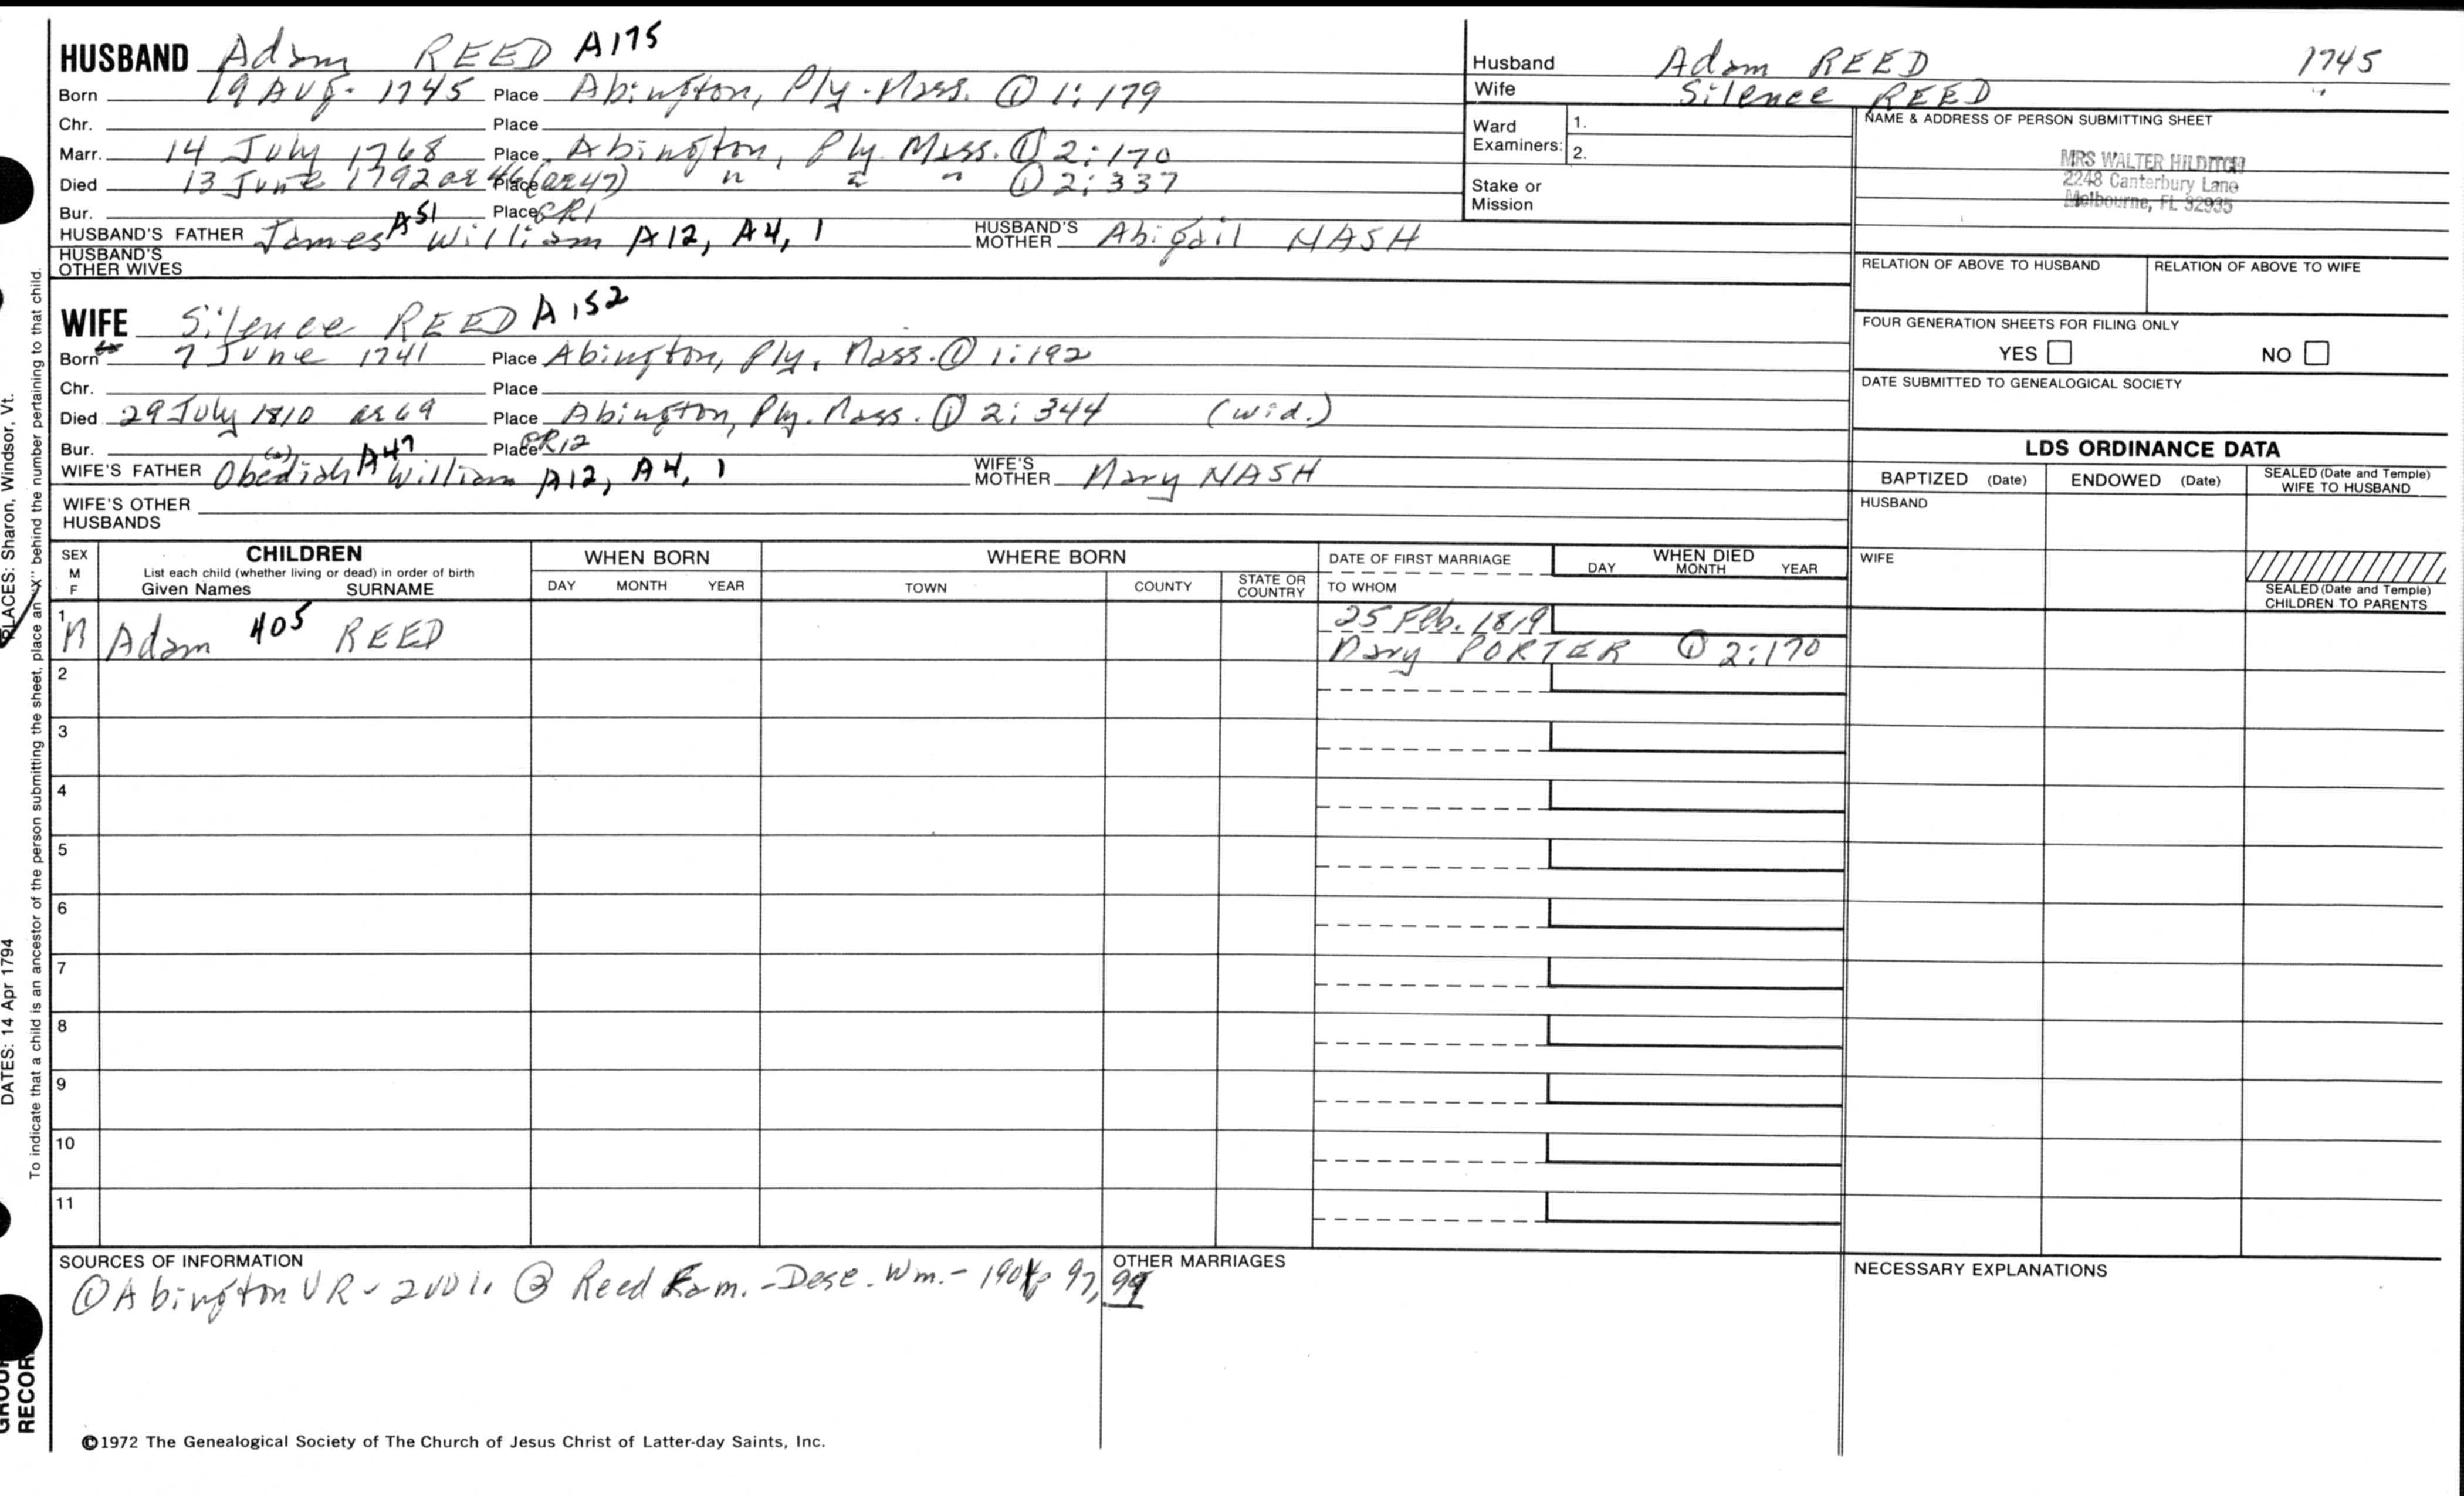 HUSBAND Adam REED A175
Born 19 Aug. 1745 Place Abington, Ply. Mass. ① 1:179
Chr. Place
Marr. 14 July 1768 Place Abington, Ply. Mass. ① 2:170
Died 13 June 1792 ae 46 (ae 47) Place " " " ① 2:337
Bur. Place CR1
HUSBAND'S FATHER James A51 William A12, A4, 1 HUSBAND'S MOTHER Abigail NASH
HUSBAND'S OTHER WIVES
WIFE Silence REED A152
Born 7 June 1741 Place Abington, Ply. Mass. ① 1:192
Chr. Place
Died 29 July 1810 ae 69 Place Abington, Ply. Mass. ① 2:344 (wid.)
Bur. Place CR12
WIFE'S FATHER Obediah (a) A47 William A12, A4, 1 WIFE'S MOTHER Mary NASH
WIFE'S OTHER HUSBANDS
Husband Adam REED 1745
Wife Silence REED "
Ward Examiners: 1.
2.
Stake or Mission
NAME & ADDRESS OF PERSON SUBMITTING SHEET
MRS WALTER HILDITCH
2248 Canterbury Lane
Melbourne, FL 32935
RELATION OF ABOVE TO HUSBAND RELATION OF ABOVE TO WIFE
FOUR GENERATION SHEETS FOR FILING ONLY
YES NO
DATE SUBMITTED TO GENEALOGICAL SOCIETY
LDS ORDINANCE DATA
BAPTIZED (Date) ENDOWED (Date) SEALED (Date and Temple) WIFE TO HUSBAND
HUSBAND
WIFE
SEALED (Date and Temple) CHILDREN TO PARENTS
SEX M F CHILDREN List each child (whether living or dead) in order of birth Given Names SURNAME WHEN BORN DAY MONTH YEAR WHERE BORN TOWN COUNTY STATE OR COUNTRY DATE OF FIRST MARRIAGE TO WHOM WHEN DIED DAY MONTH YEAR
1 M Adam 405 REED 25 Feb. 1819
Mary PORTER ① 2:170
2
3
4
5
6
7
8
9
10
11
SOURCES OF INFORMATION
① Abington VR - 2 vol. ② Reed Fam. - Desc. Wm. - 97, 99
OTHER MARRIAGES
NECESSARY EXPLANATIONS
©1972 The Genealogical Society of The Church of Jesus Christ of Latter-day Saints, Inc.
PLACES: Sharon, Windsor, Vt.
DATES: 14 Apr 1794
To indicate that a child is an ancestor of the person submitting the sheet, place an "X" behind the number pertaining to that child.
GROUP RECORD